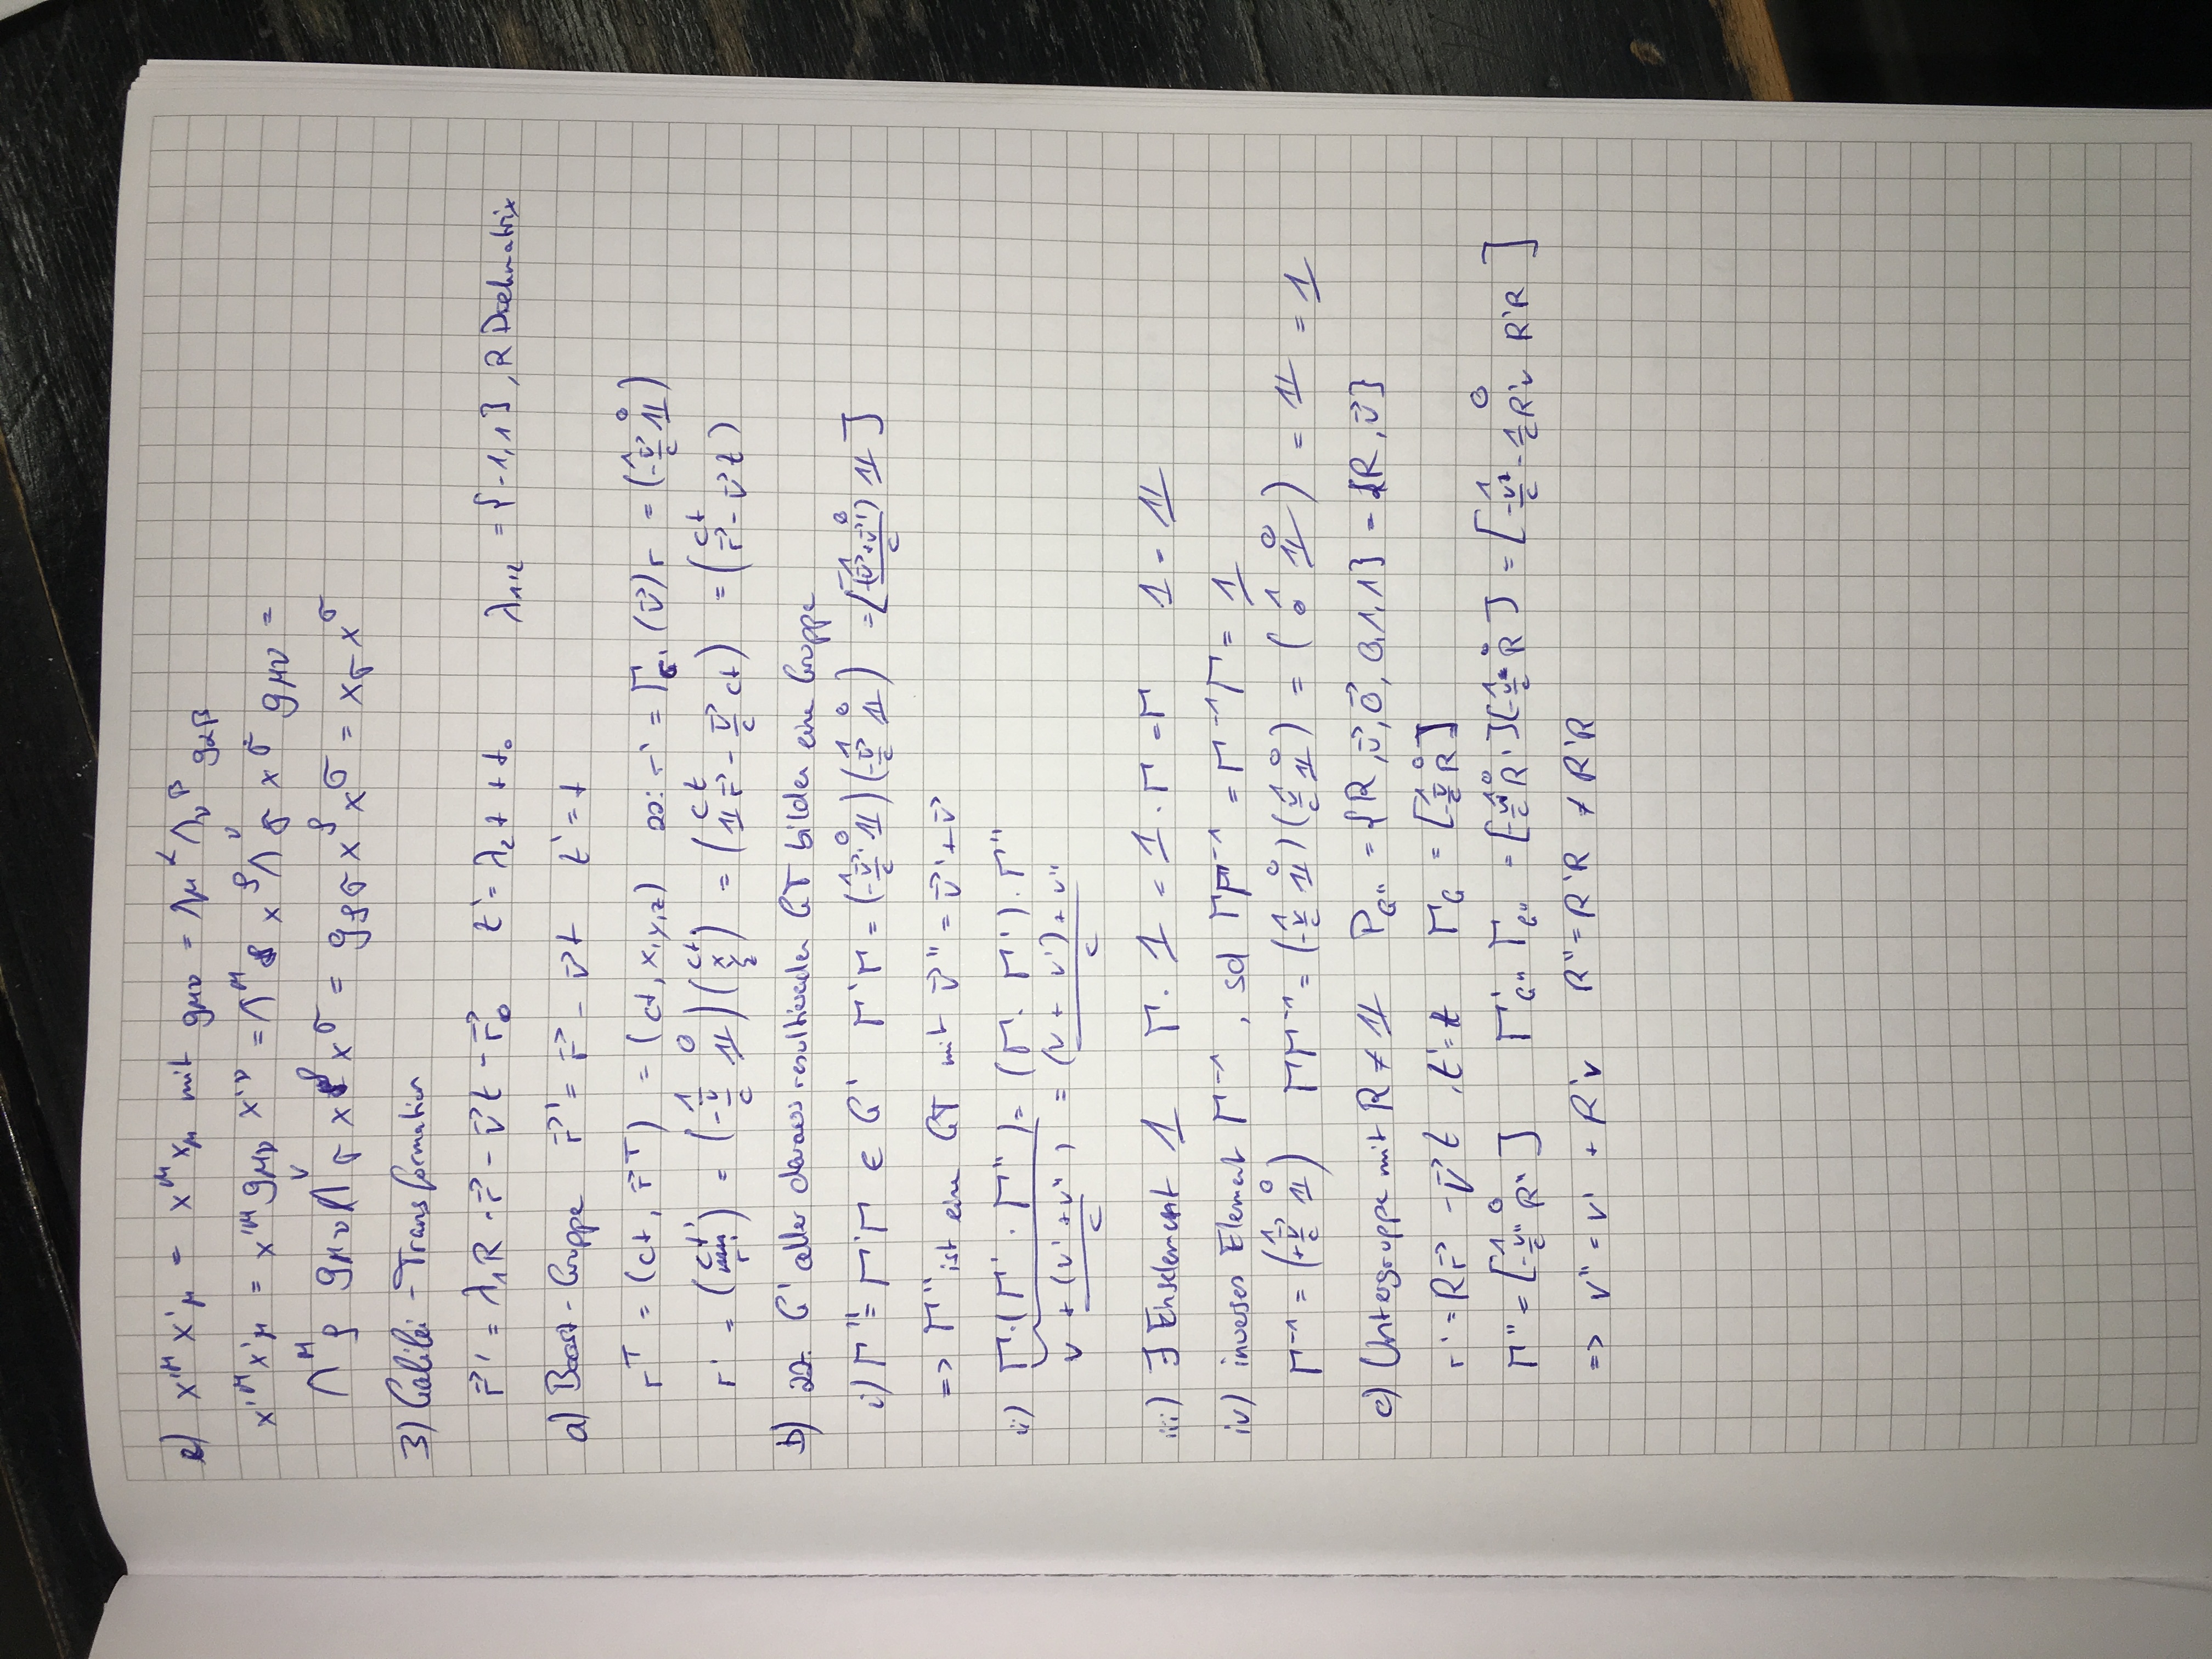 e) x'^μ x'_μ = x^μ x_μ mit g_μν = Λ_μ^α Λ_ν^β g_αβ
x'^μ x'_μ = x'^μ g_μν x'^ν = Λ^μ_ρ x^ρ Λ^ν_σ x^σ g_μν =
Λ^μ_ρ g_μν Λ^ν_σ x^ρ x^σ = g_ρσ x^ρ x^σ = x_σ x^σ
3) Galilei-Transformation
r⃗' = λ₁R · r⃗ - v⃗t - r⃗₀ t' = λ₂t + t₀ λ₁,₂ = {-1,1}, R Drehmatrix
a) Boost-Gruppe r⃗' = r⃗ - v⃗t t' = t
r^T = (ct, r⃗^T) = (ct, x,y,z) zz: r' = Γ_G' (v⃗) r = (1 0; -v⃗/c 𝟙)
r' = (ct'; r') = (1 0; -v/c 𝟙)(ct; x; y; z) = (ct; 𝟙r⃗ - v⃗/c ct) = (ct; r⃗ - v⃗t)
b) zz. G' aller daraus resultierenden GT bilden eine Gruppe
i) Γ'' = Γ'Γ ∈ G' Γ'Γ = (1 0; -v⃗'/c 𝟙)(1 0; -v⃗/c 𝟙) = [1 0; -(v⃗+v⃗')/c 𝟙]
=> Γ'' ist eine GT mit v⃗'' = v⃗' + v⃗
ii) Γ·(Γ' · Γ'') = (Γ · Γ') · Γ''
v + (v' + v'')/c = (v + v') + v''/c
iii) ∃ Einselement 1 Γ · 1 = 1 · Γ = Γ 1 = 𝟙
iv) inverses Element Γ⁻¹, sd ΓΓ⁻¹ = Γ⁻¹Γ = 1
Γ⁻¹ = (1 0; +v⃗/c 𝟙) ΓΓ⁻¹ = (1 0; -v/c 𝟙)(1 0; v/c 𝟙) = (1 0; 0 𝟙) = 𝟙 = 1
c) Untergruppe mit R ≠ 𝟙 P_G'' = {R, v⃗, 0⃗, 0,1,1} = {R, v⃗}
r' = Rr⃗ - v⃗t, t' = t Γ_G = [1 0; -v/c R]
Γ'' = [1 0; -v''/c R''] Γ'_G'' Γ_G'' = [1 0; -v'/c R'][1 0; -v/c R] = [1 0; -v'/c - 1/c R'v R'R]
=> v'' = v' + R'v R'' = R'R ≠ R'R